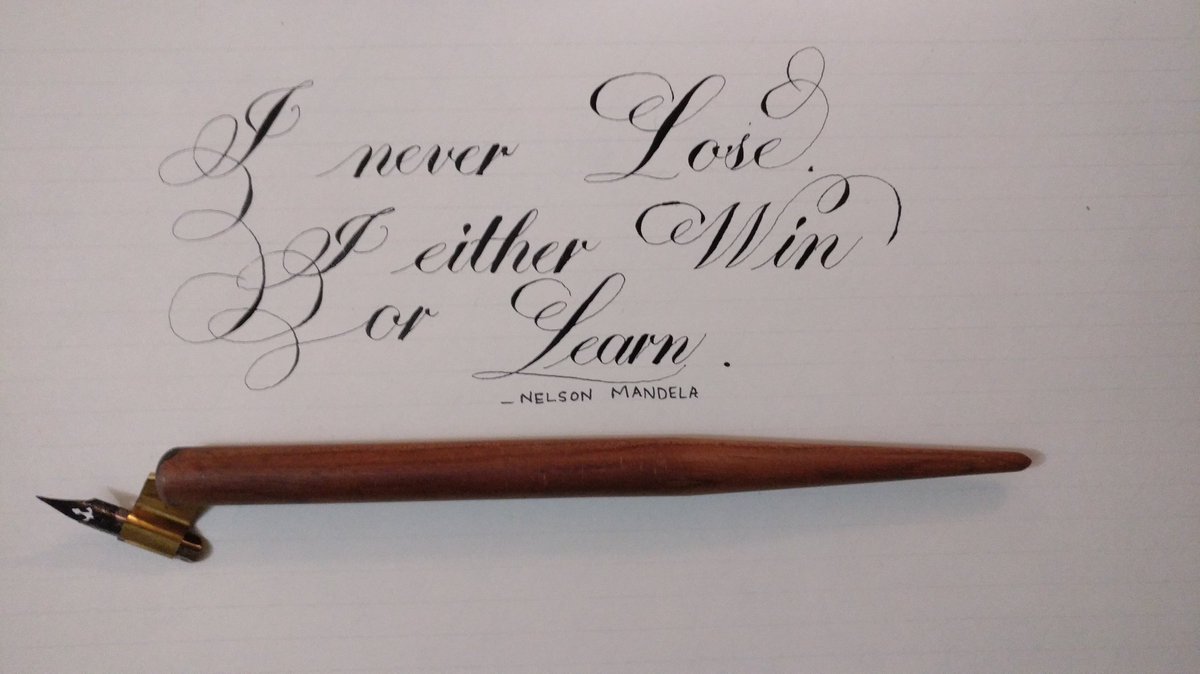 I never Lose.
I either Win
or Learn.
_ NELSON MANDELA